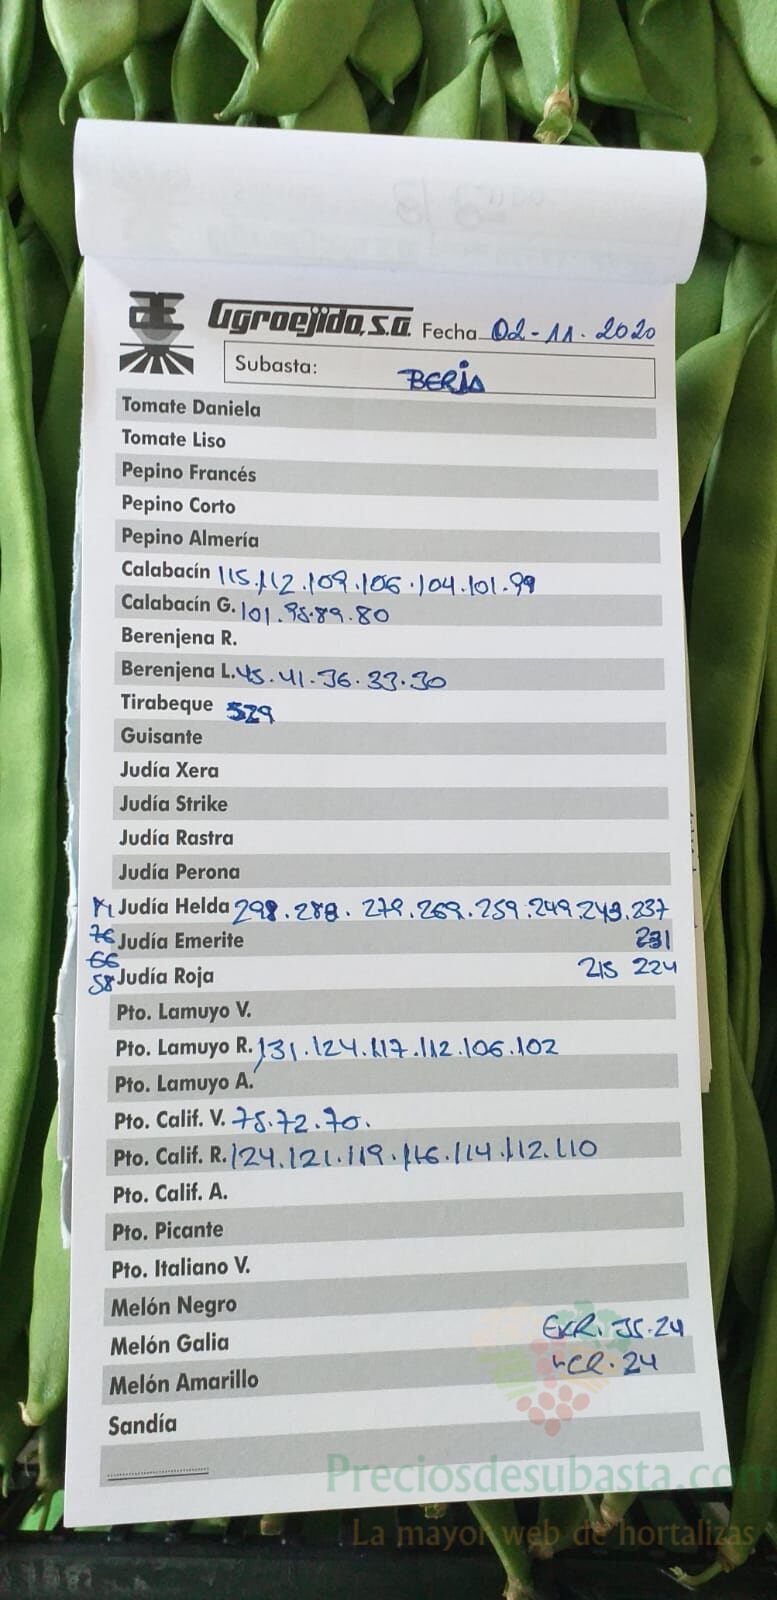 Agroejido, S.A. Fecha 02-11-2020
Subasta: BERJA
Tomate Daniela
Tomate Liso
Pepino Francés
Pepino Corto
Pepino Almería
Calabacín 115.112.109.106.104.101.99
Calabacín G. 101.95.89.80
Berenjena R.
Berenjena L. 45.41.36.33.30
Tirabeque 529
Guisante
Judía Xera
Judía Strike
Judía Rastra
Judía Perona
Judía Helda 298.288.279.269.259.249.243.237
76 Judía Emerite 231
66
58 Judía Roja 215 224
Pto. Lamuyo V.
Pto. Lamuyo R. 131.124.117.112.106.102
Pto. Lamuyo A.
Pto. Calif. V. 75.72.70.
Pto. Calif. R. 124.121.119.116.114.112.110
Pto. Calif. A.
Pto. Picante
Pto. Italiano V.
Melón Negro
Melón Galia
Melón Amarillo
Sandía
Preciosdesubasta.com
La mayor web de hortalizas